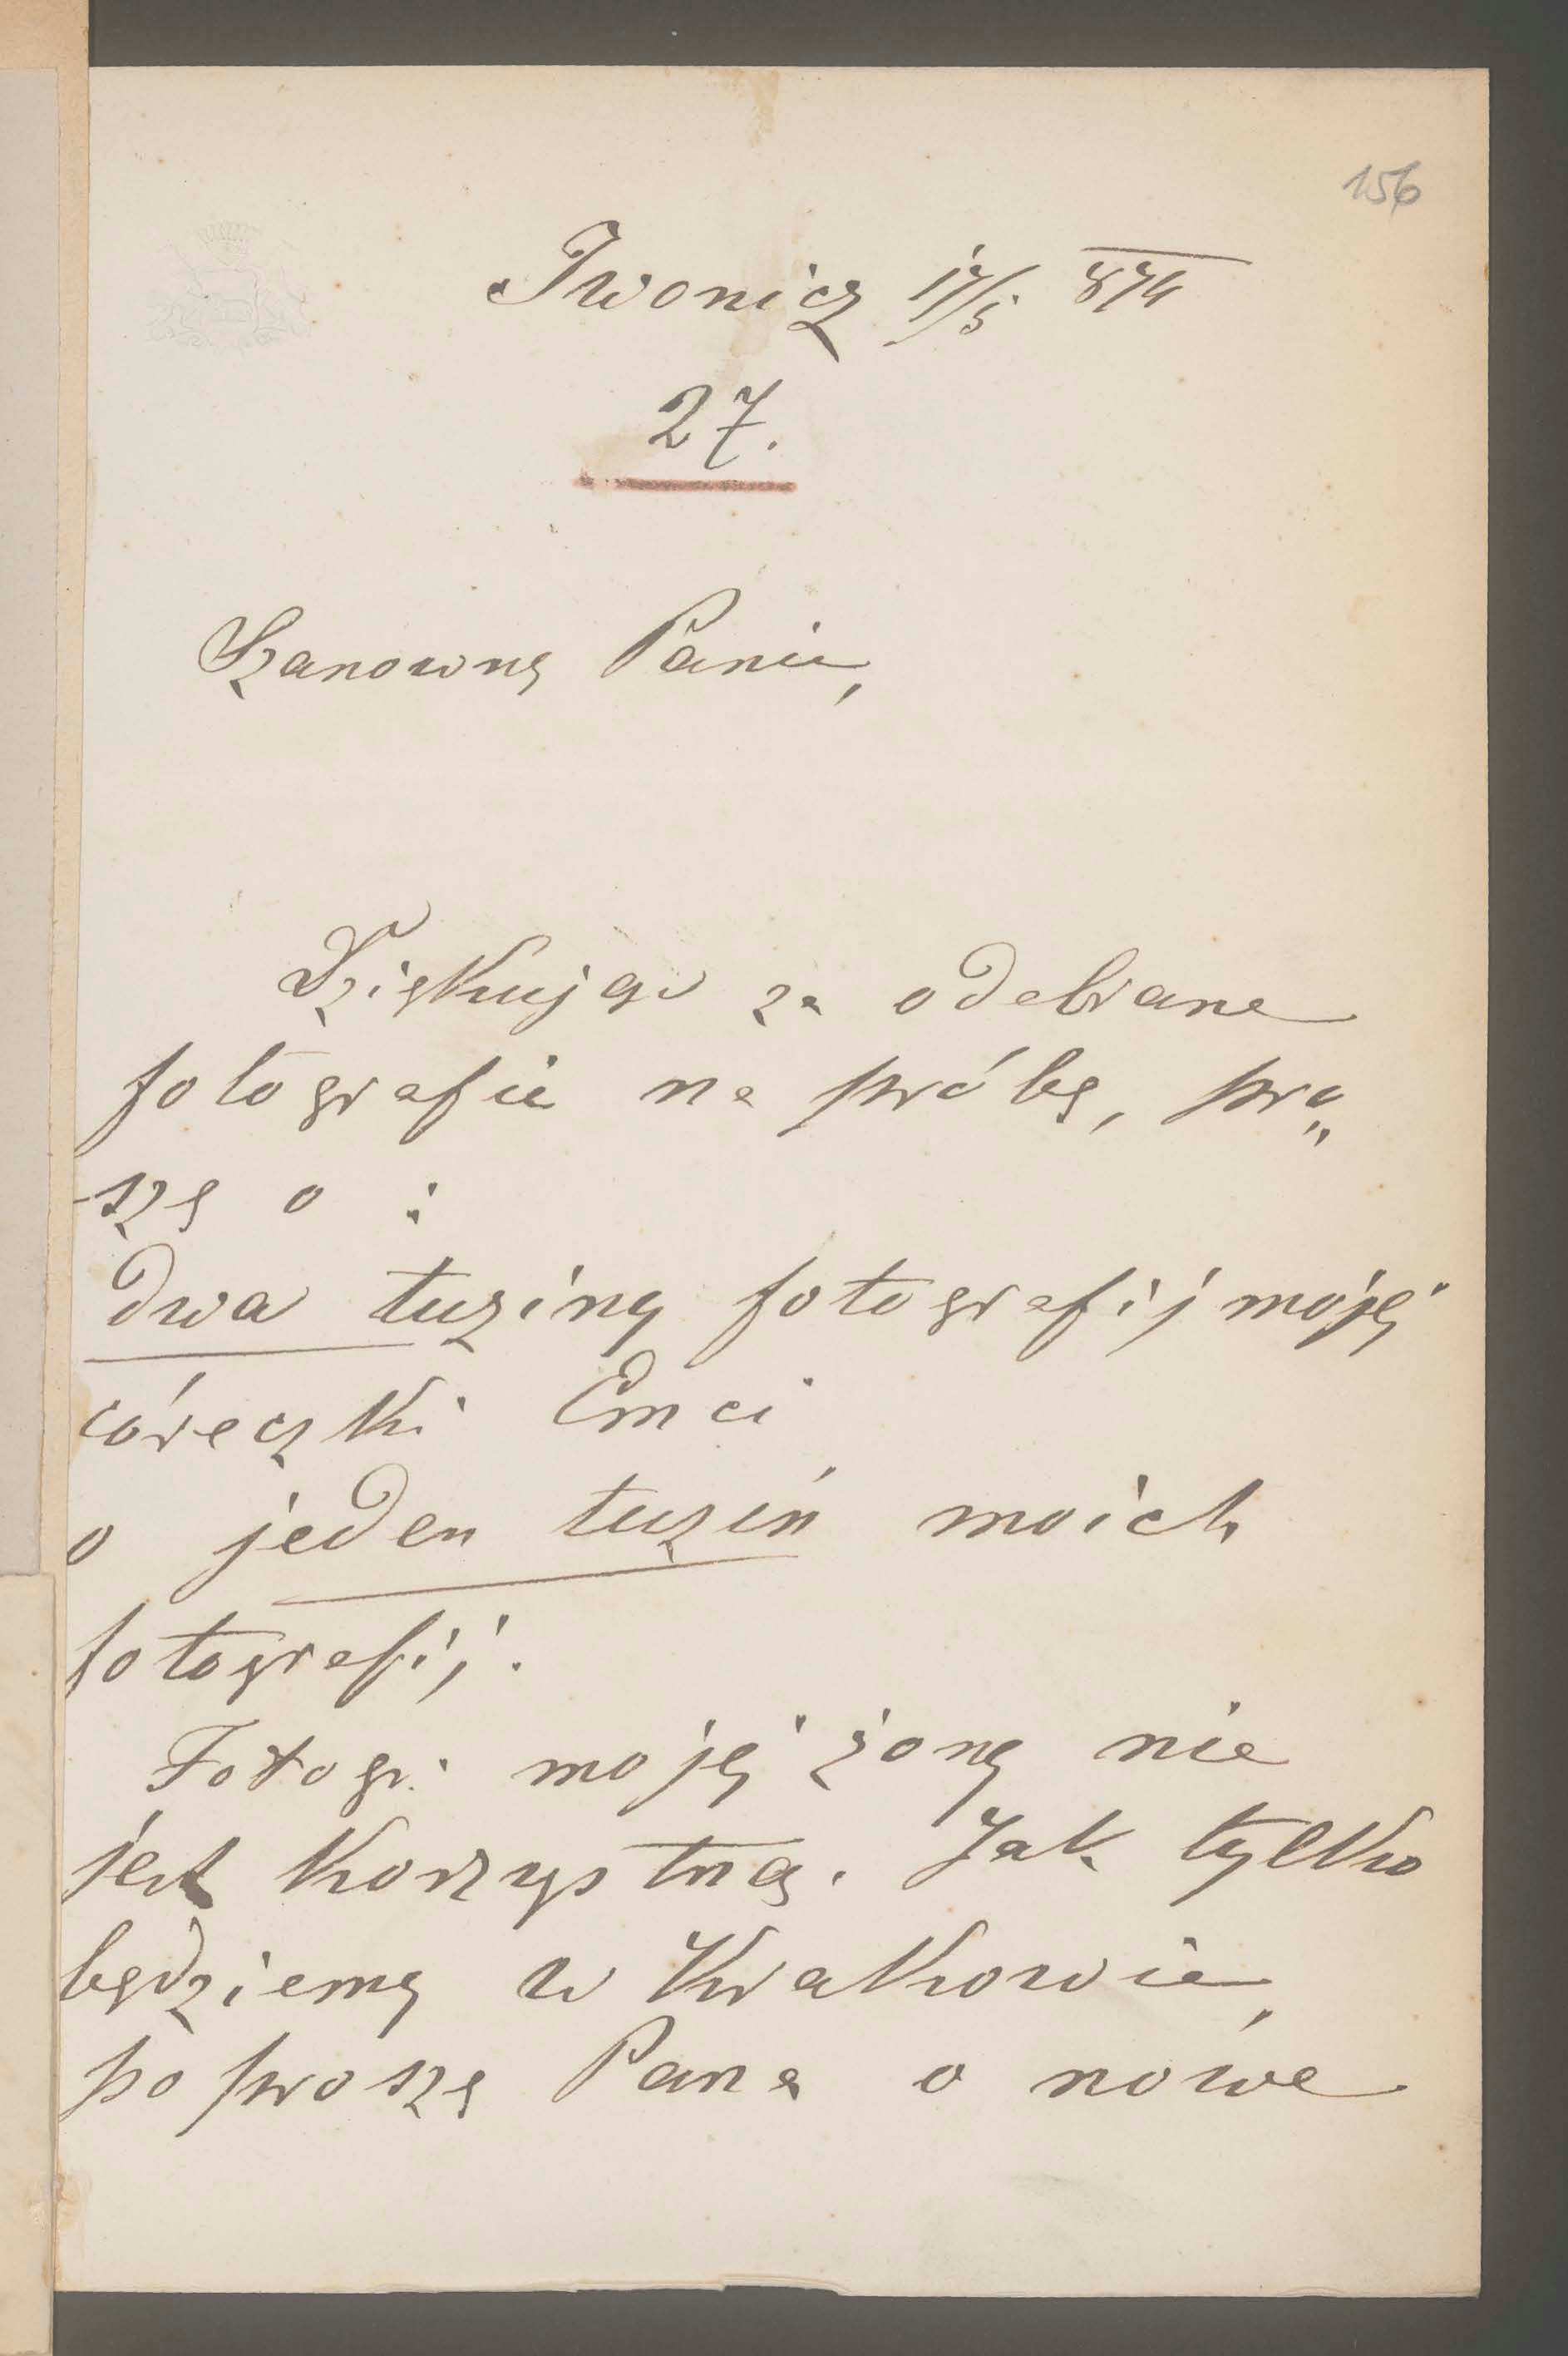 156
Iwonicz 17/5 874
27.
Szanowny Panie,
Dziękując za odebrane
fotografie na próbę, pro„
-szę o :
dwa tuziny fotografij mojéj
córeczki Emci,
o jeden tuzin moich
fotografij.
Fotogr: mojéj żony nie
jest korzystną. Jak tylko
będziemy w Krakowie,
poproszę Pana o nowe